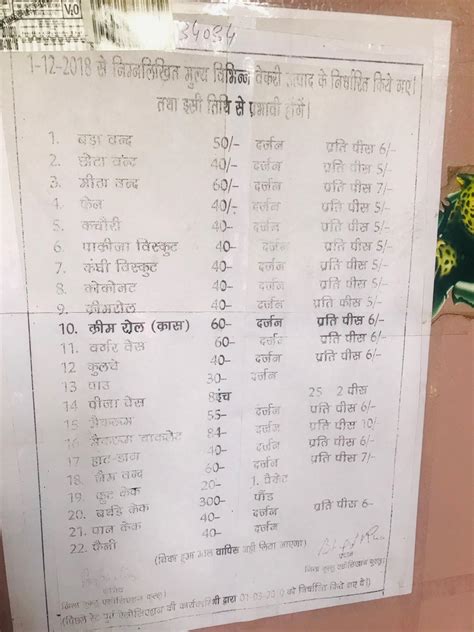 V.O
34034
1-12-2018 से निम्नलिखित मुल्य विभिन्न वेकरी उत्पाद के निर्धारित किये गए।
तथा इसी तिथि से प्रभावी होगें।
1. बड़ा वन्द 50/- दर्जन प्रति पीस 6/-
2. छोटा वन्द 40/- दर्जन प्रति पीस 5/-
3. मीठा वन्द 60/- दर्जन प्रति पीस 7/-
4. फेन 40/- दर्जन प्रति पीस 5/-
5. कचौरी 40- दर्जन प्रति पीस 5/-
6 पाकीजा विस्कुट 40- दर्जन प्रति पीस 5/-
7 कंघी विस्कुट 40- दर्जन प्रति पीस 5/-
8 कोकोनट 40- दर्जन प्रति पीस 5/-
9 क्रीमरोल 40- दर्जन प्रति पीस 5/-
10. क्रीम रोल (कास) 60- दर्जन प्रति पीस 6/-
11. वर्गर वेस 60- दर्जन प्रति पीस 6/-
12 कुलचे 40- दर्जन प्रति पीस 6/-
13 पाउ 30- दर्जन
14 पीजा वेस 8इंच 25 2 पीस
15 मैकरुम 55- दर्जन प्रति पीस 6/-
16 मैकरुम चाकलेट 84- दर्जन प्रति पीस 10/-
17 40- दर्जन प्रति पीस 7/-
18 वन्द 60- दर्जन
19. फ्रुट केक 20- 1. पैकेट
20. बर्थडे केक 300- पौंड
21. पान केक 40- दर्जन प्रति पीस 6-
22. 40- दर्जन
(विका हुआ माल वापिस नहीं लिया जाएगा)
प्रधान